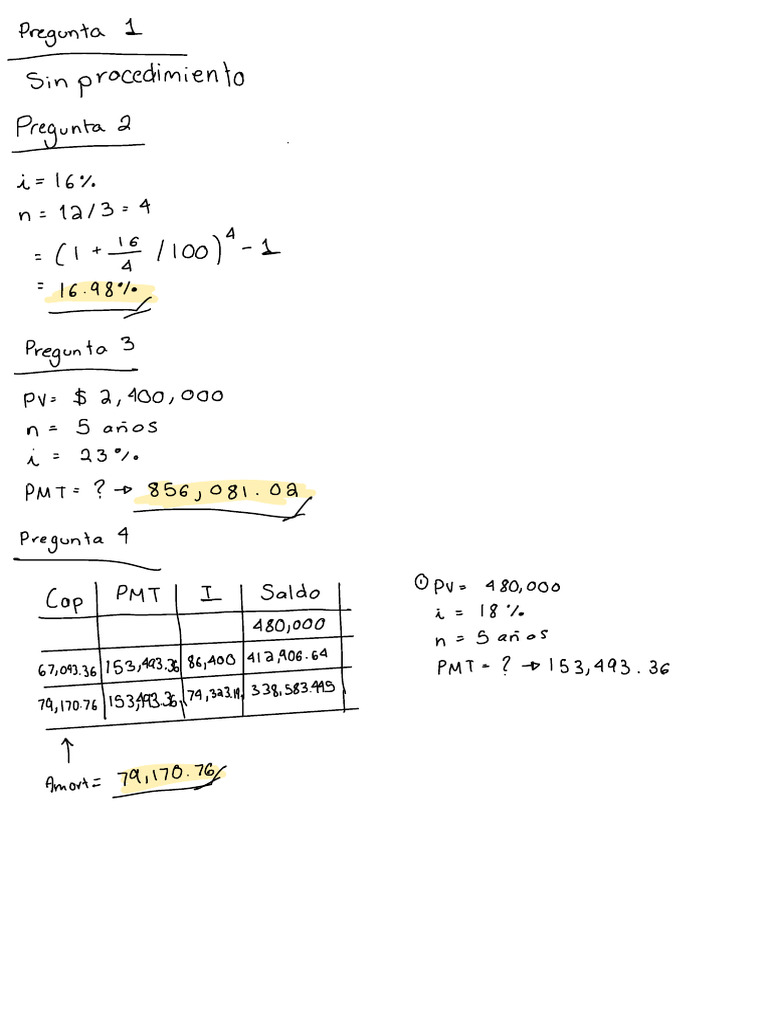 Pregunta 1
Sin procedimiento
Pregunta 2
i = 16%
n = 12/3 = 4
= (1 + 16/4 /100)^4 - 1
= 16.98%
Pregunta 3
PV= $ 2,400,000
n = 5 años
i = 23%
PMT = ? → 856,081.02
Pregunta 4
Cap PMT I Saldo
480,000
67,093.36 153,493.36 86,400 412,906.64
79,170.76 153,493.36 74,323.19 338,583.445
↑
Amort = 79,170.76
① PV= 480,000
i = 18%
n = 5 años
PMT = ? → 153,493.36